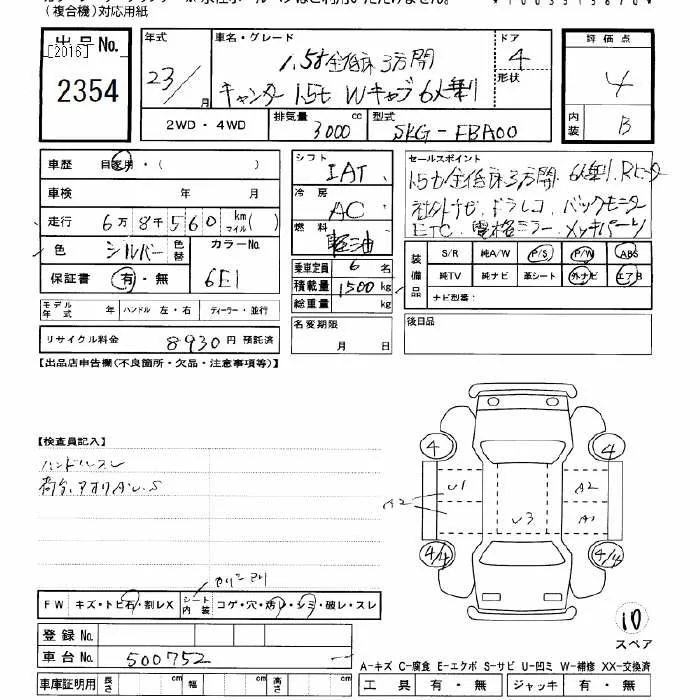 (複合機)対応用紙
出品No.
[2016]
2354
年式
23/ 月
車名・グレード
1.5t全低床3方開
キャンター 1.5t Wキャブ 6人乗り
ドア
4
形状
2WD・4WD
排気量
3000 cc
型式
SKG-FBA00
評価点
4
内装
B
車歴 自家用・( )
車検 年 月
走行 6万8千560 km マイル( )
色 シルバー 色替 カラーNo.
保証書 有・無 6E1
モデル年式 年 ハンドル 左・右 ディーラー・並行
リサイクル料金 8930円 預託済
シフト
IAT
冷房
AC
燃料
軽油
乗車定員 6 名
積載量 1500 kg
総重量 kg
名変期限
月 日
セールスポイント
1.5t全低床3方開 6人乗り Rヒーター
社外ナビ ドラレコ バックモニター
ETC 電格ミラー メッキパーツ
装備品
S/R 純A/W P/S P/W ABS
純TV 純ナビ 革シート 外ナビ エアB
ナビ型番:
後日品
【出品店申告欄(不良箇所・欠品・注意事項等)】
【検査員記入】
ハンドルスレ
荷台、アオリA.U.S
FW キズ・トビ石・割レX
シート内装 コゲ・穴・汚レ・シミ・破レ・スレ
登録No.
車台No. 500752
車庫証明用 長さ cm 幅 cm 高さ cm
4 4
U1 A2
A2
U3 A1
4/4 4/4
10
スペア
A-キズ C-腐食 E-エクボ S-サビ U-凹ミ W-補修 XX-交換済
工具 有・無 ジャッキ 有・無